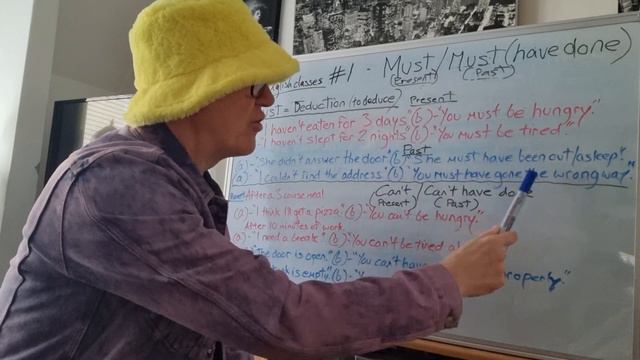 glish classes #1 - Must/Must (have done)
(Present) (Past)
ust = Deduction (to deduce) Present
I haven't eaten for 3 days" (b)-"You must be hungry."
-"I haven't slept for 2 nights" (b)-"You must be tired."
Past
(a)-"She didn't answer the door" (b)"She must have been out/asleep."
(a)-"I couldn't find the address" (b)"You must have gone wrong way."
After a 5 course meal Can't / Can't have do
(Present) (Past)
(a)-"I think I'll get a pizza." (b)-"You can't be hungry."
After 10 minutes of work.
(a)-"I need a break" (b)-"You can't be tired al
"The door is open." (b)-"You can't hav
k is empty." (b)-"Y roperly."